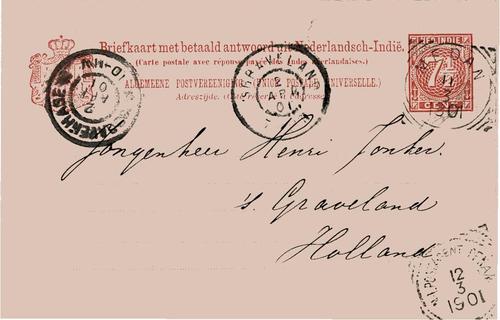 Briefkaart met betaald antwoord uit Nederlandsch-Indië.
(Carte postale avec réponse payée des Indes néerlandaises.)
ALGEMEENE POSTVEREENIGING (UNION POSTALE UNIVERSELLE).
Adreszijde. (Côté réservé à l'adresse.)
NED-INDIE
7½
CENT
11
3
1901
'S GRAVELAND
2
APR
01
2
APR
01
Jongenheer Henri Jonker.
's Graveland
Holland
N.I. POSTAGENT PENANG
12
3
1901